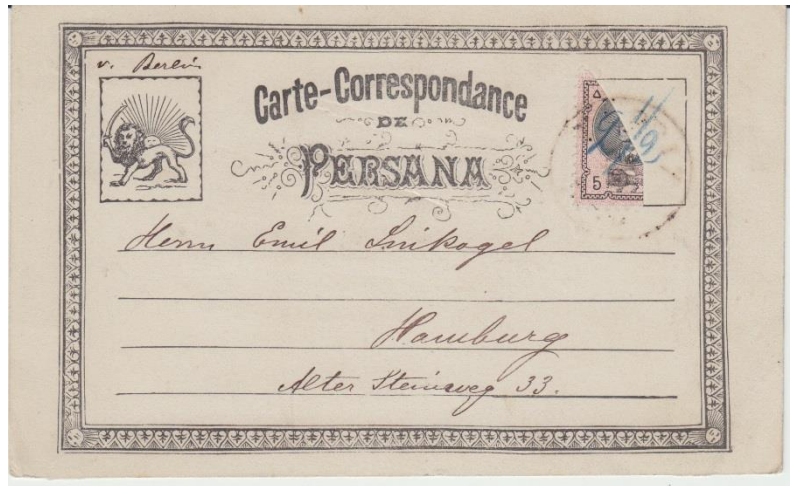 v. Berlin
Carte-Correspondance
DE
PERSANA
5
Herrn Emil
Hamburg
Alter Steinweg 33.